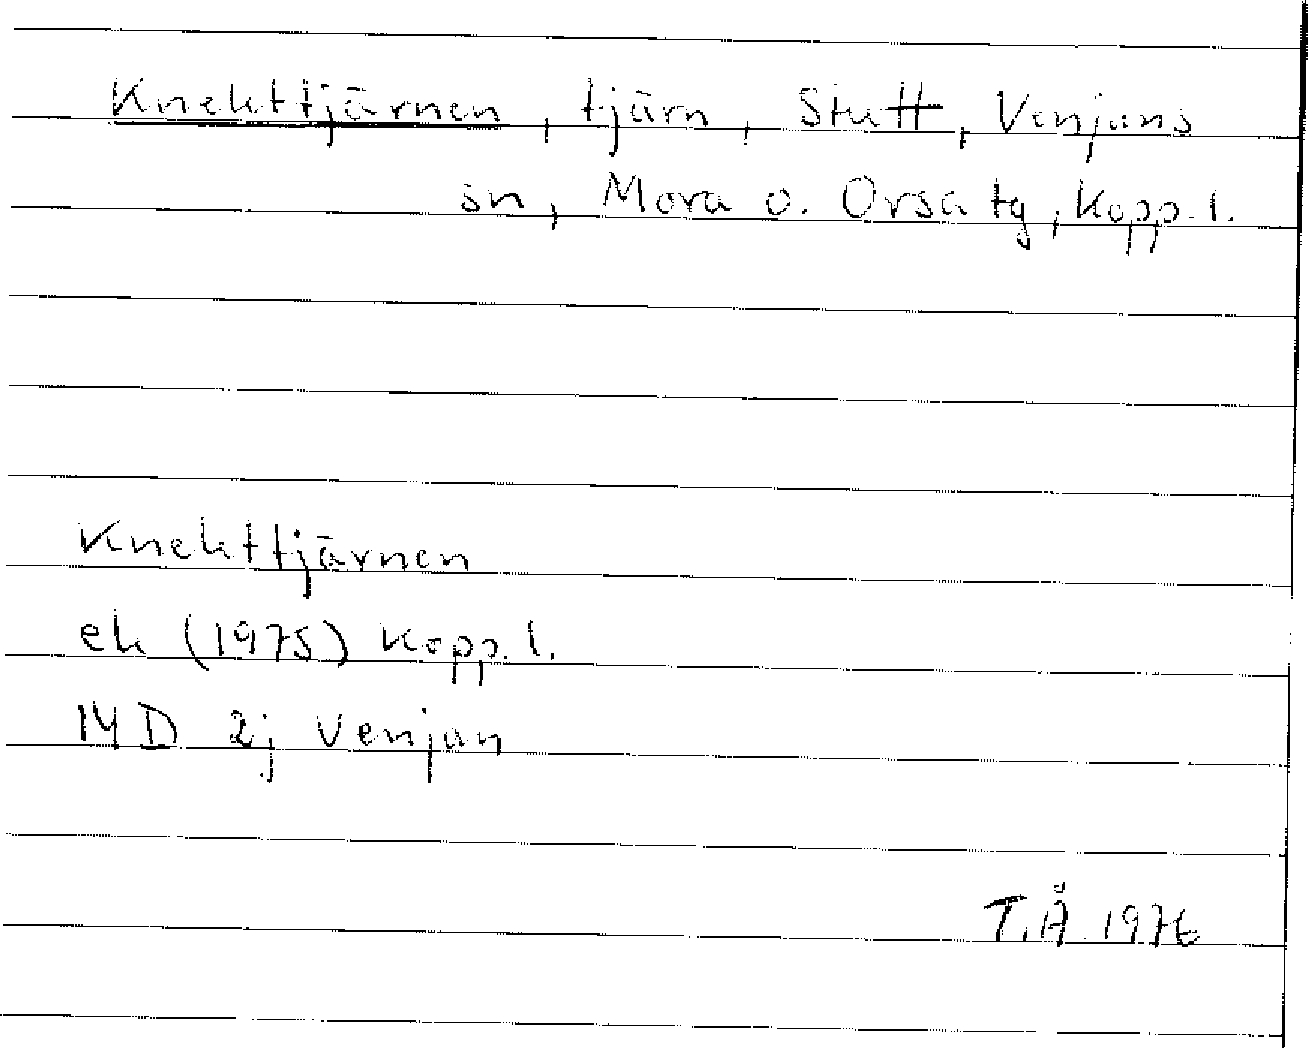 Knekttjärnen, tjärn, Stutt, Venjans
sn, Mora o. Orsa tg, Kopp. l.
Knekttjärnen
ek (1975) Kopp. l.
14 D 2j Venjan
T.Å 1976